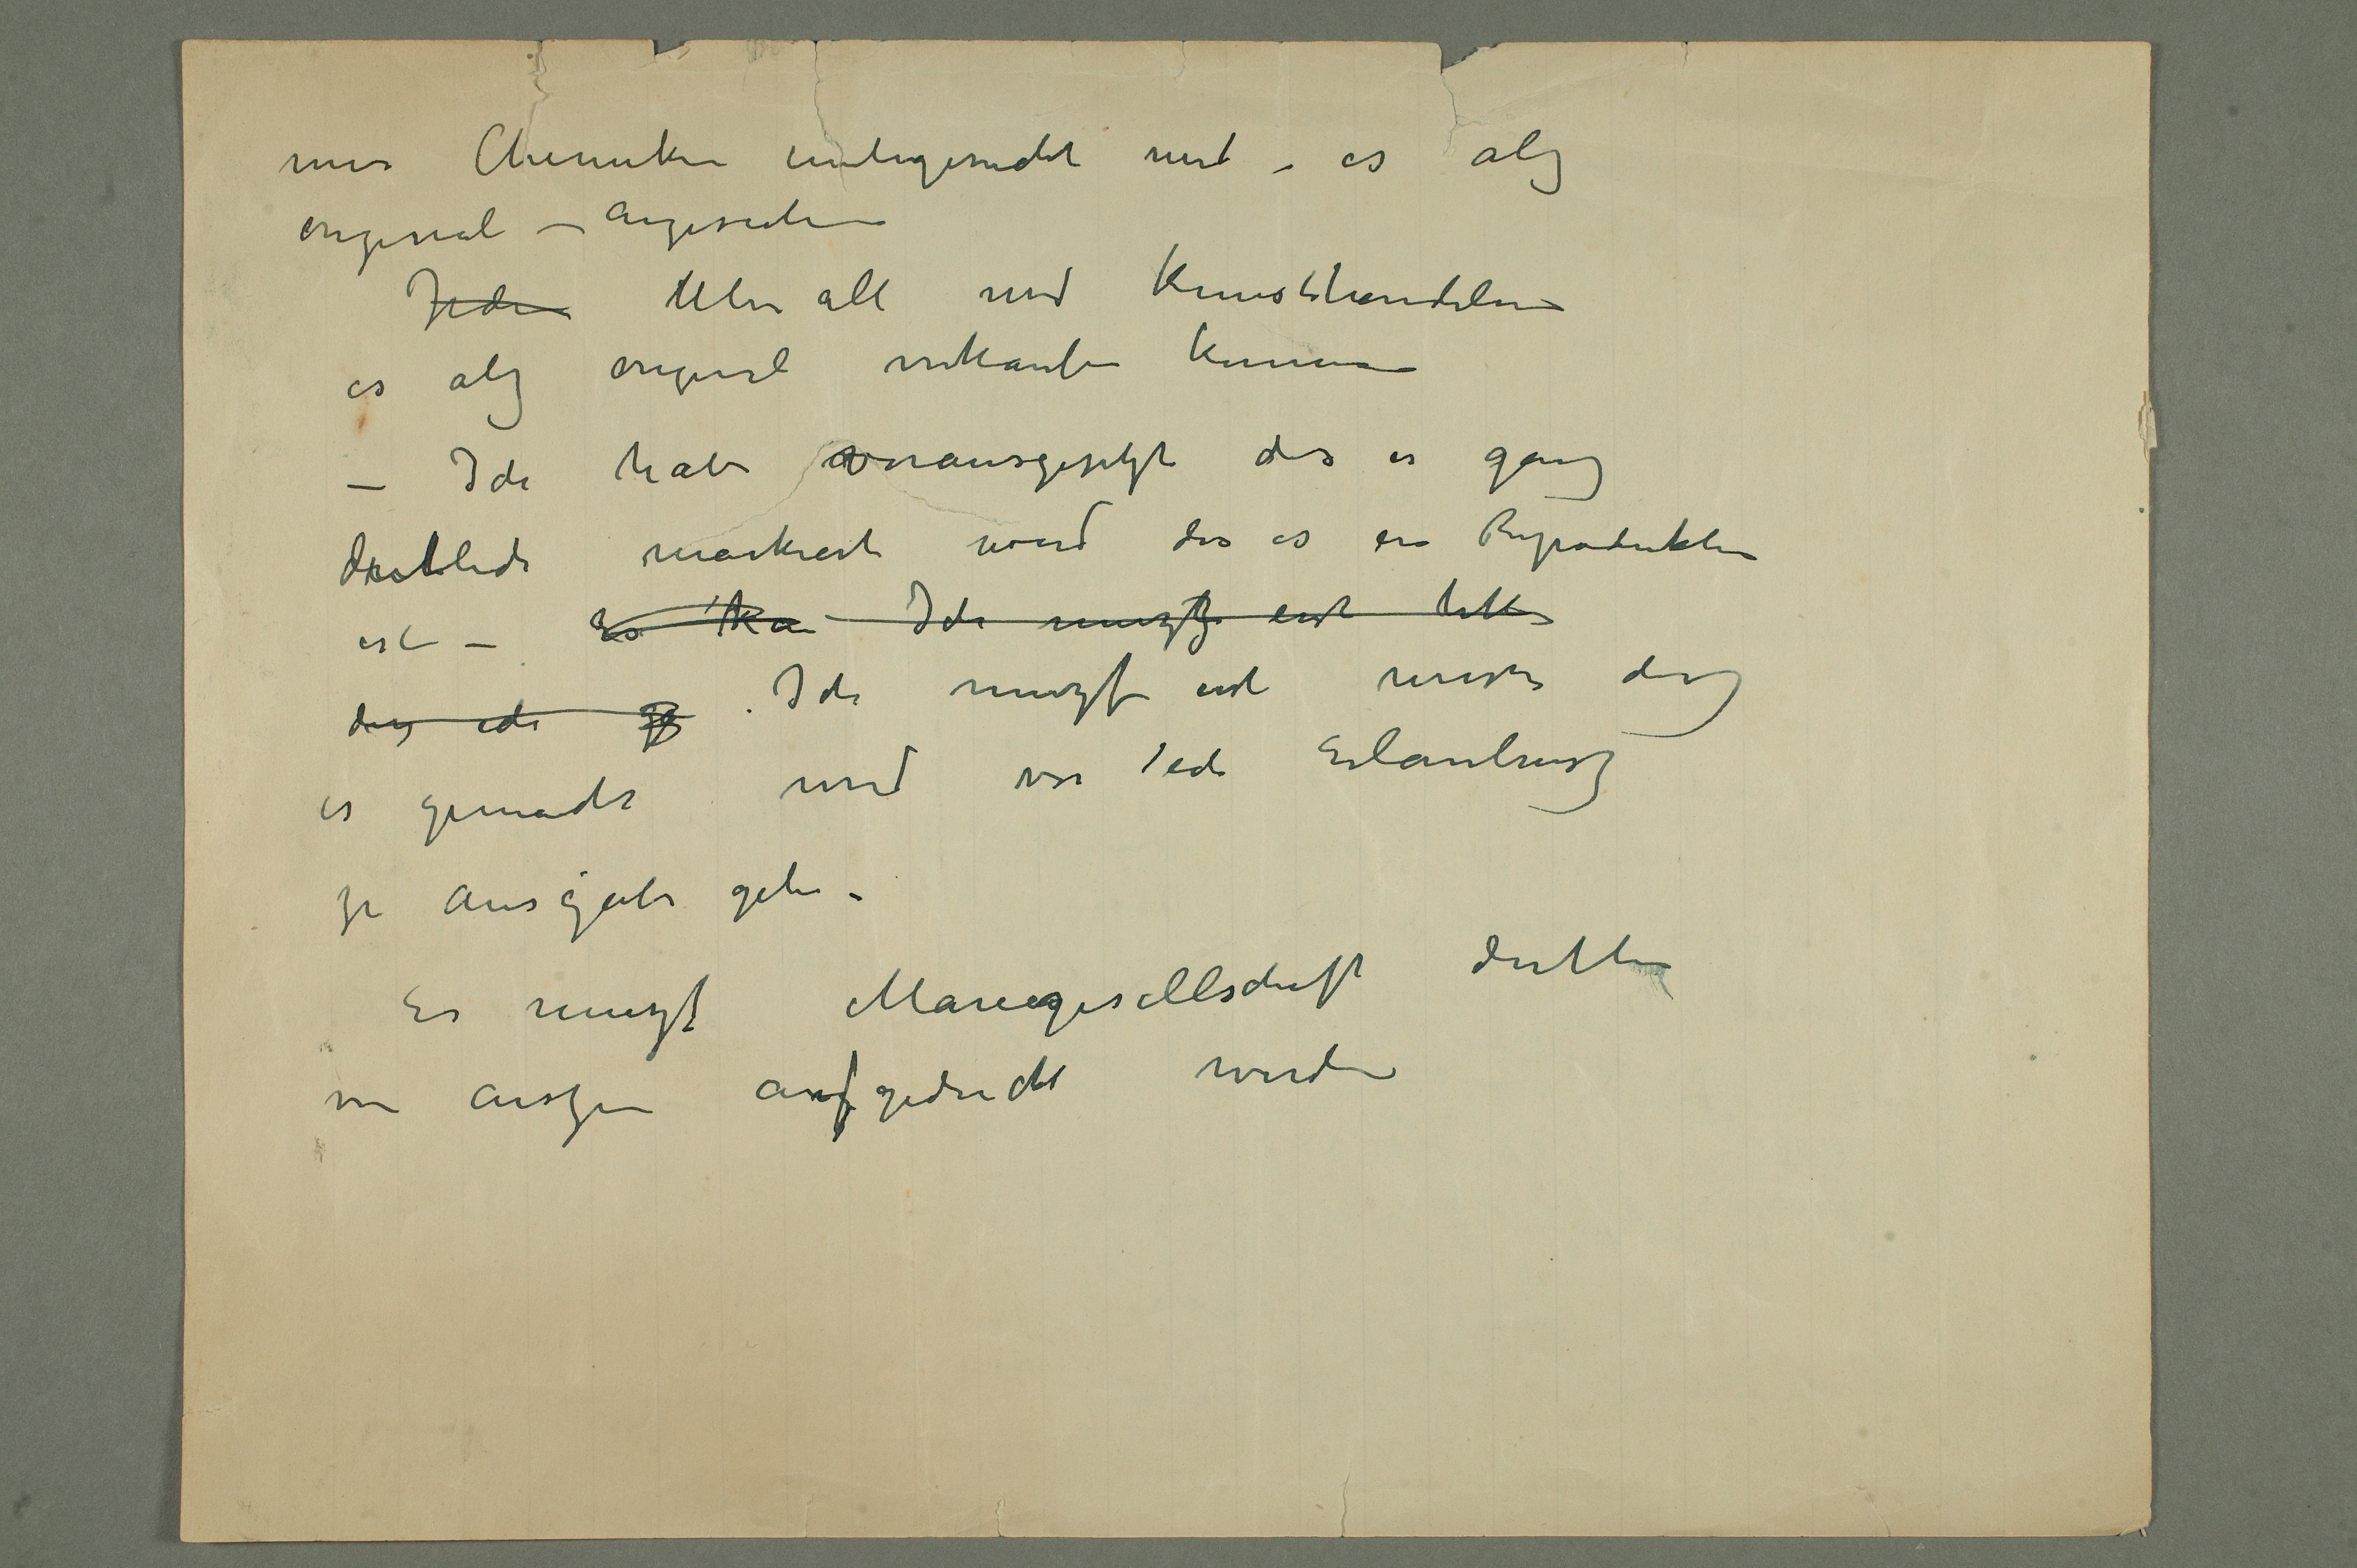 mer Chemiker untergesucht wird – es alz
original – angesehen
Jeder Uber all wird Kunsthandler
es alz original verkaufen kunnen
– Ich habe vorausgesetzt das es ganz
deutlich markiert wird das es ein Reproduktion
ist – Es ka Ich muszt erst bitte
dasz ich . Ich muszt erst wissen dasz
es gemacht wird vor ich Erlaubnisz
zu Ausgabe gebe –
Es muszt Mareesgesellschaft deutlich
von auszen aufgedruckt werden